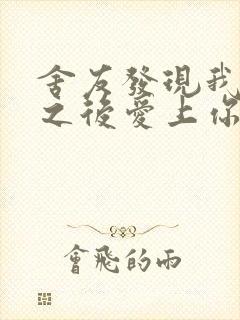 舍友發現我
之後愛上你
會飛的雨